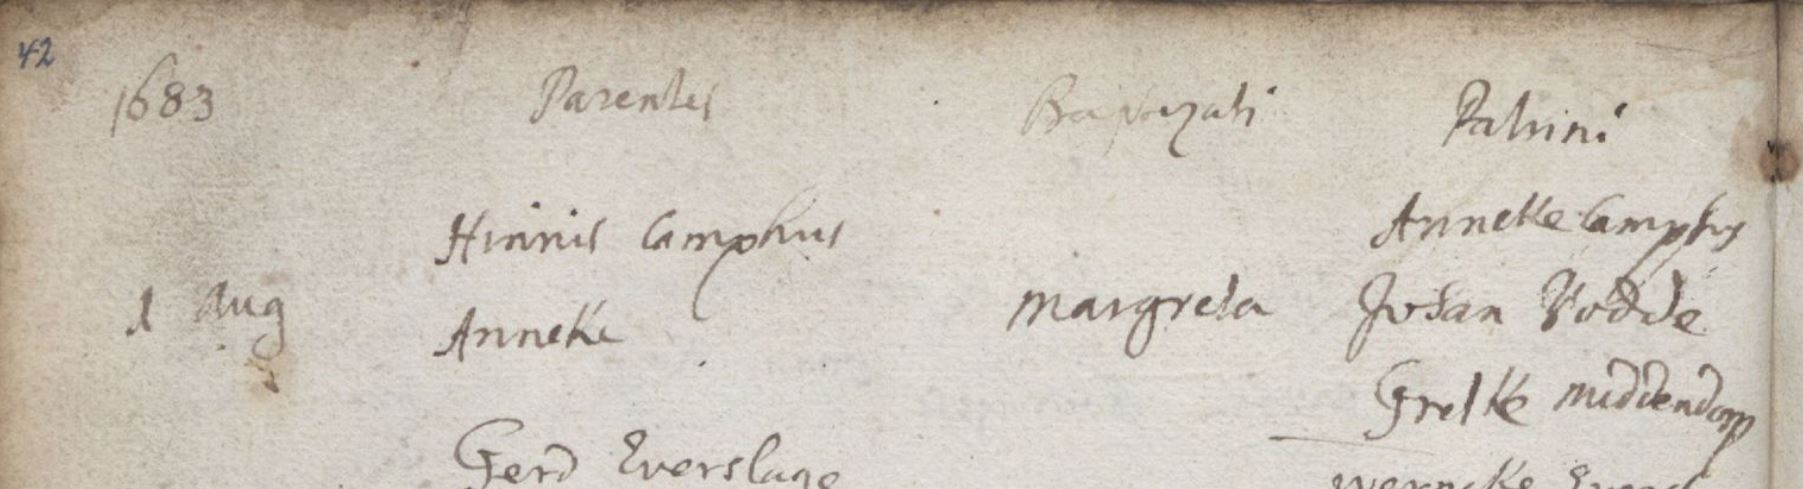 42
1683 Parentes Baptizati Patrini
Hinnis Camphus Anneke Camphus
1 Aug Anneke Margreta Johan Vodde
Gretke Middendorp
Gerd Everslage werneke Everd